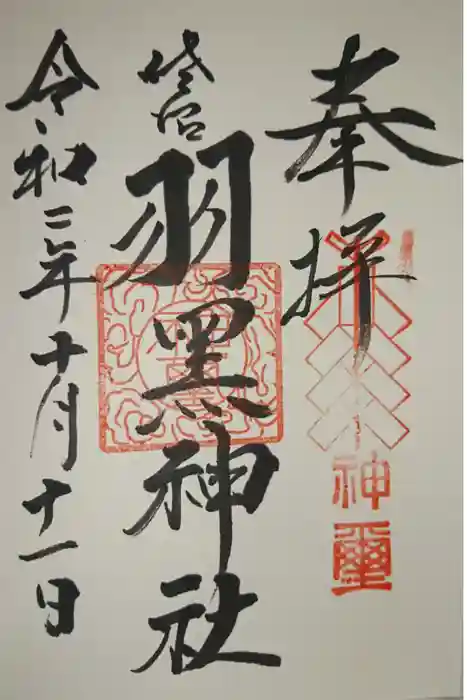 奉拝
羽黒神社
令和三年十月十一日
神璽